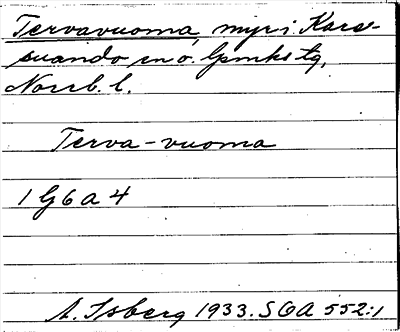 Tervavuoma, myr i Kare-
suando sn o. lpmks tg,
Norrb. l.
Terva-vuoma
1 G 6 a 4
A. Isberg 1933. SOA 552:1